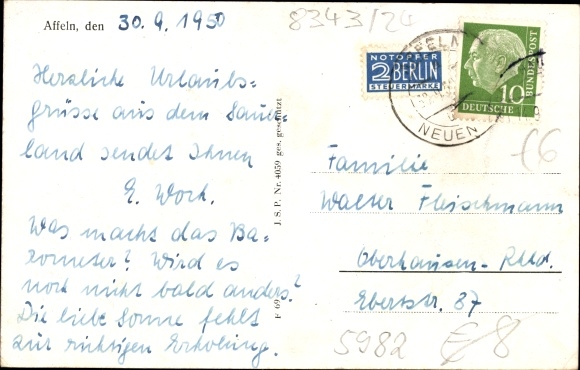 Affeln, den 30.9.1950
8343/24
NOTOPFER
2 BERLIN
STEUERMARKE
DEUTSCHE
BUNDESPOST
10
NEUEN
Herzliche Urlaubs=
grüsse aus dem Sauer=
land sendet Ihnen
E. Work.
Was macht das Ba=
rometer? Wird es
noch nicht bald anders?
Die liebe Sonne fehlt
zur richtigen Erholung.
J. S. P. Nr. 4059 ges. geschützt
Familie
Walter Fleischmann
Oberhausen-Rhld.
Ebertstr. 87
£6
5982
8